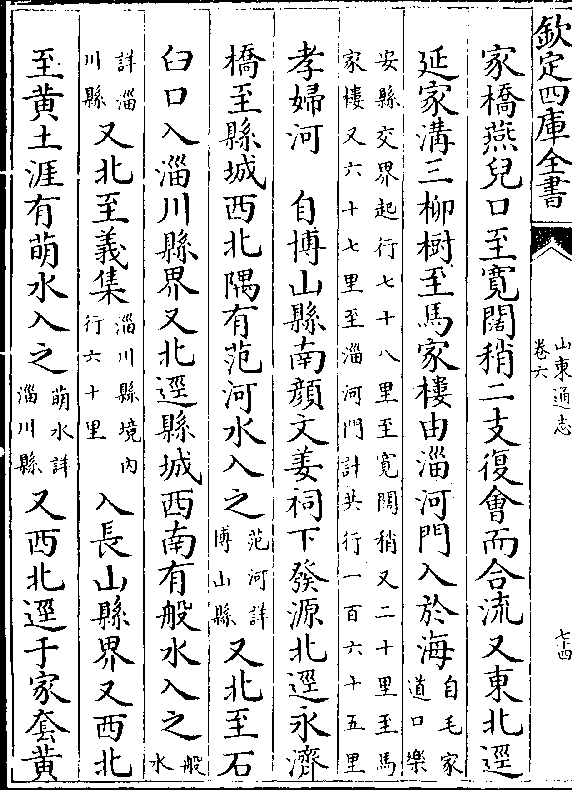 欽定四庫全書
山東通志
卷六
七十四
家橋燕兒口至寬闊稍二支復會而合流又東北逕
延家溝三柳樹至馬家樓由淄河門入於海自毛家道口樂
安縣交界起行七十八里至寬闊稍又二十里至馬
家樓又六十七里至淄河門計共行一百六十五里
孝婦河　自博山縣南顏文姜祠下發源北逕永濟
橋至縣城西北隅有范河水入之范河詳博山縣又北至石
臼口入淄川縣界又北逕縣城西南有般水入之般水
詳淄川縣又北至義集淄川縣境內行六十里入長山縣界又西北
至黃土涯有萌水入之萌水詳淄川縣又西北逕于家套黃